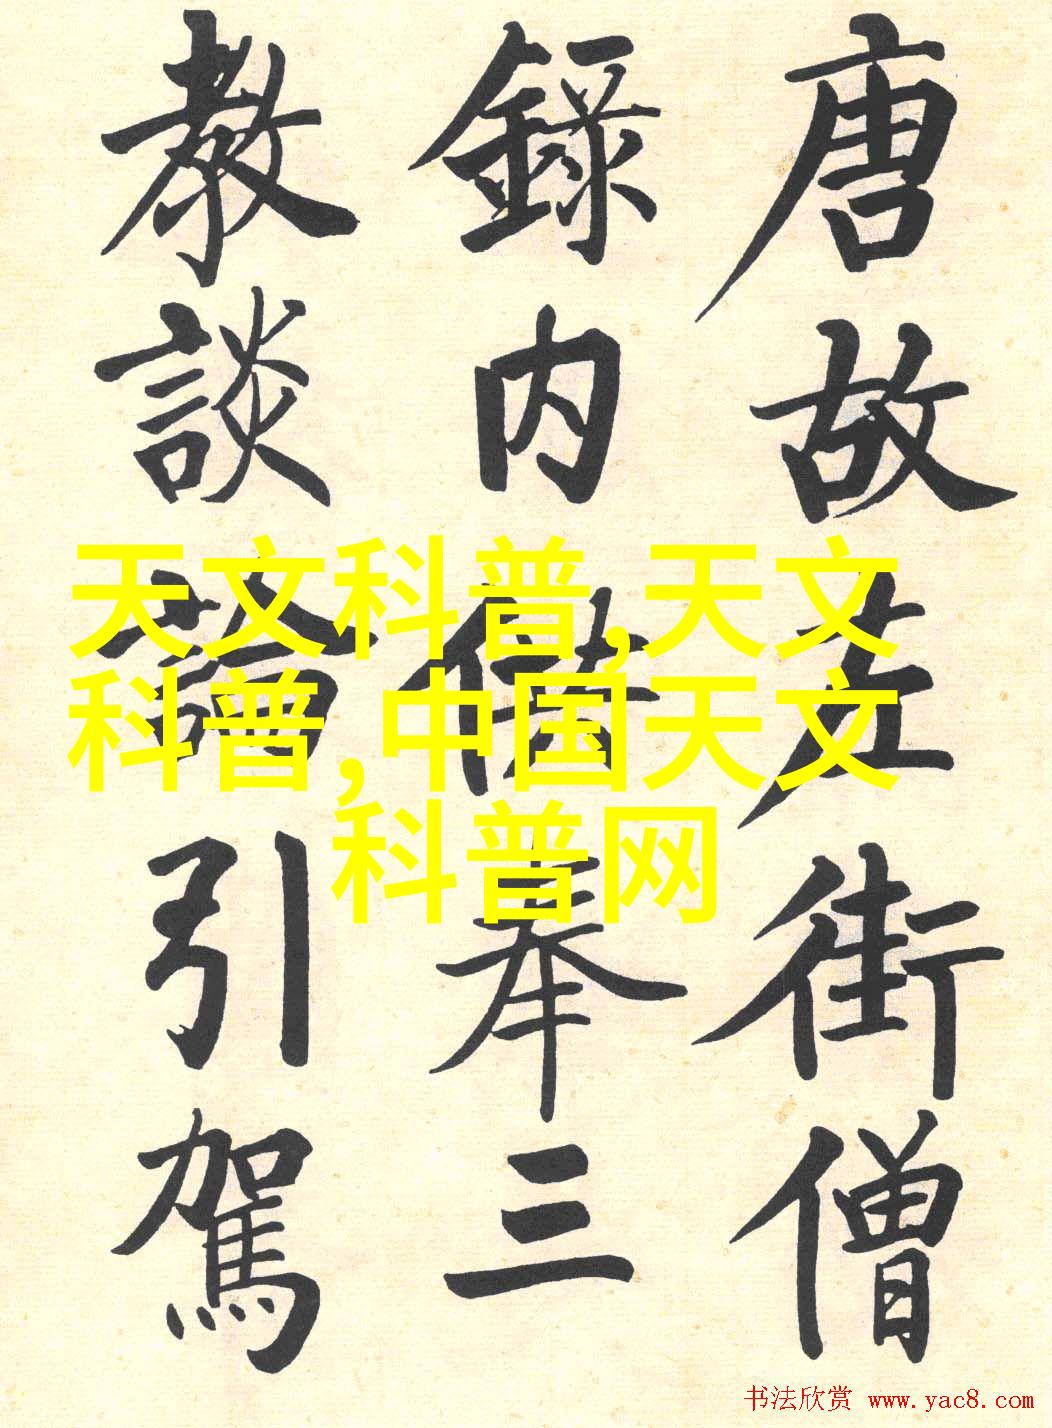 唐故左街僧
錄内供奉三
教談論引駕
天文科普,天文
科普,中国天文
科普网
书法欣赏 www.yac8.com